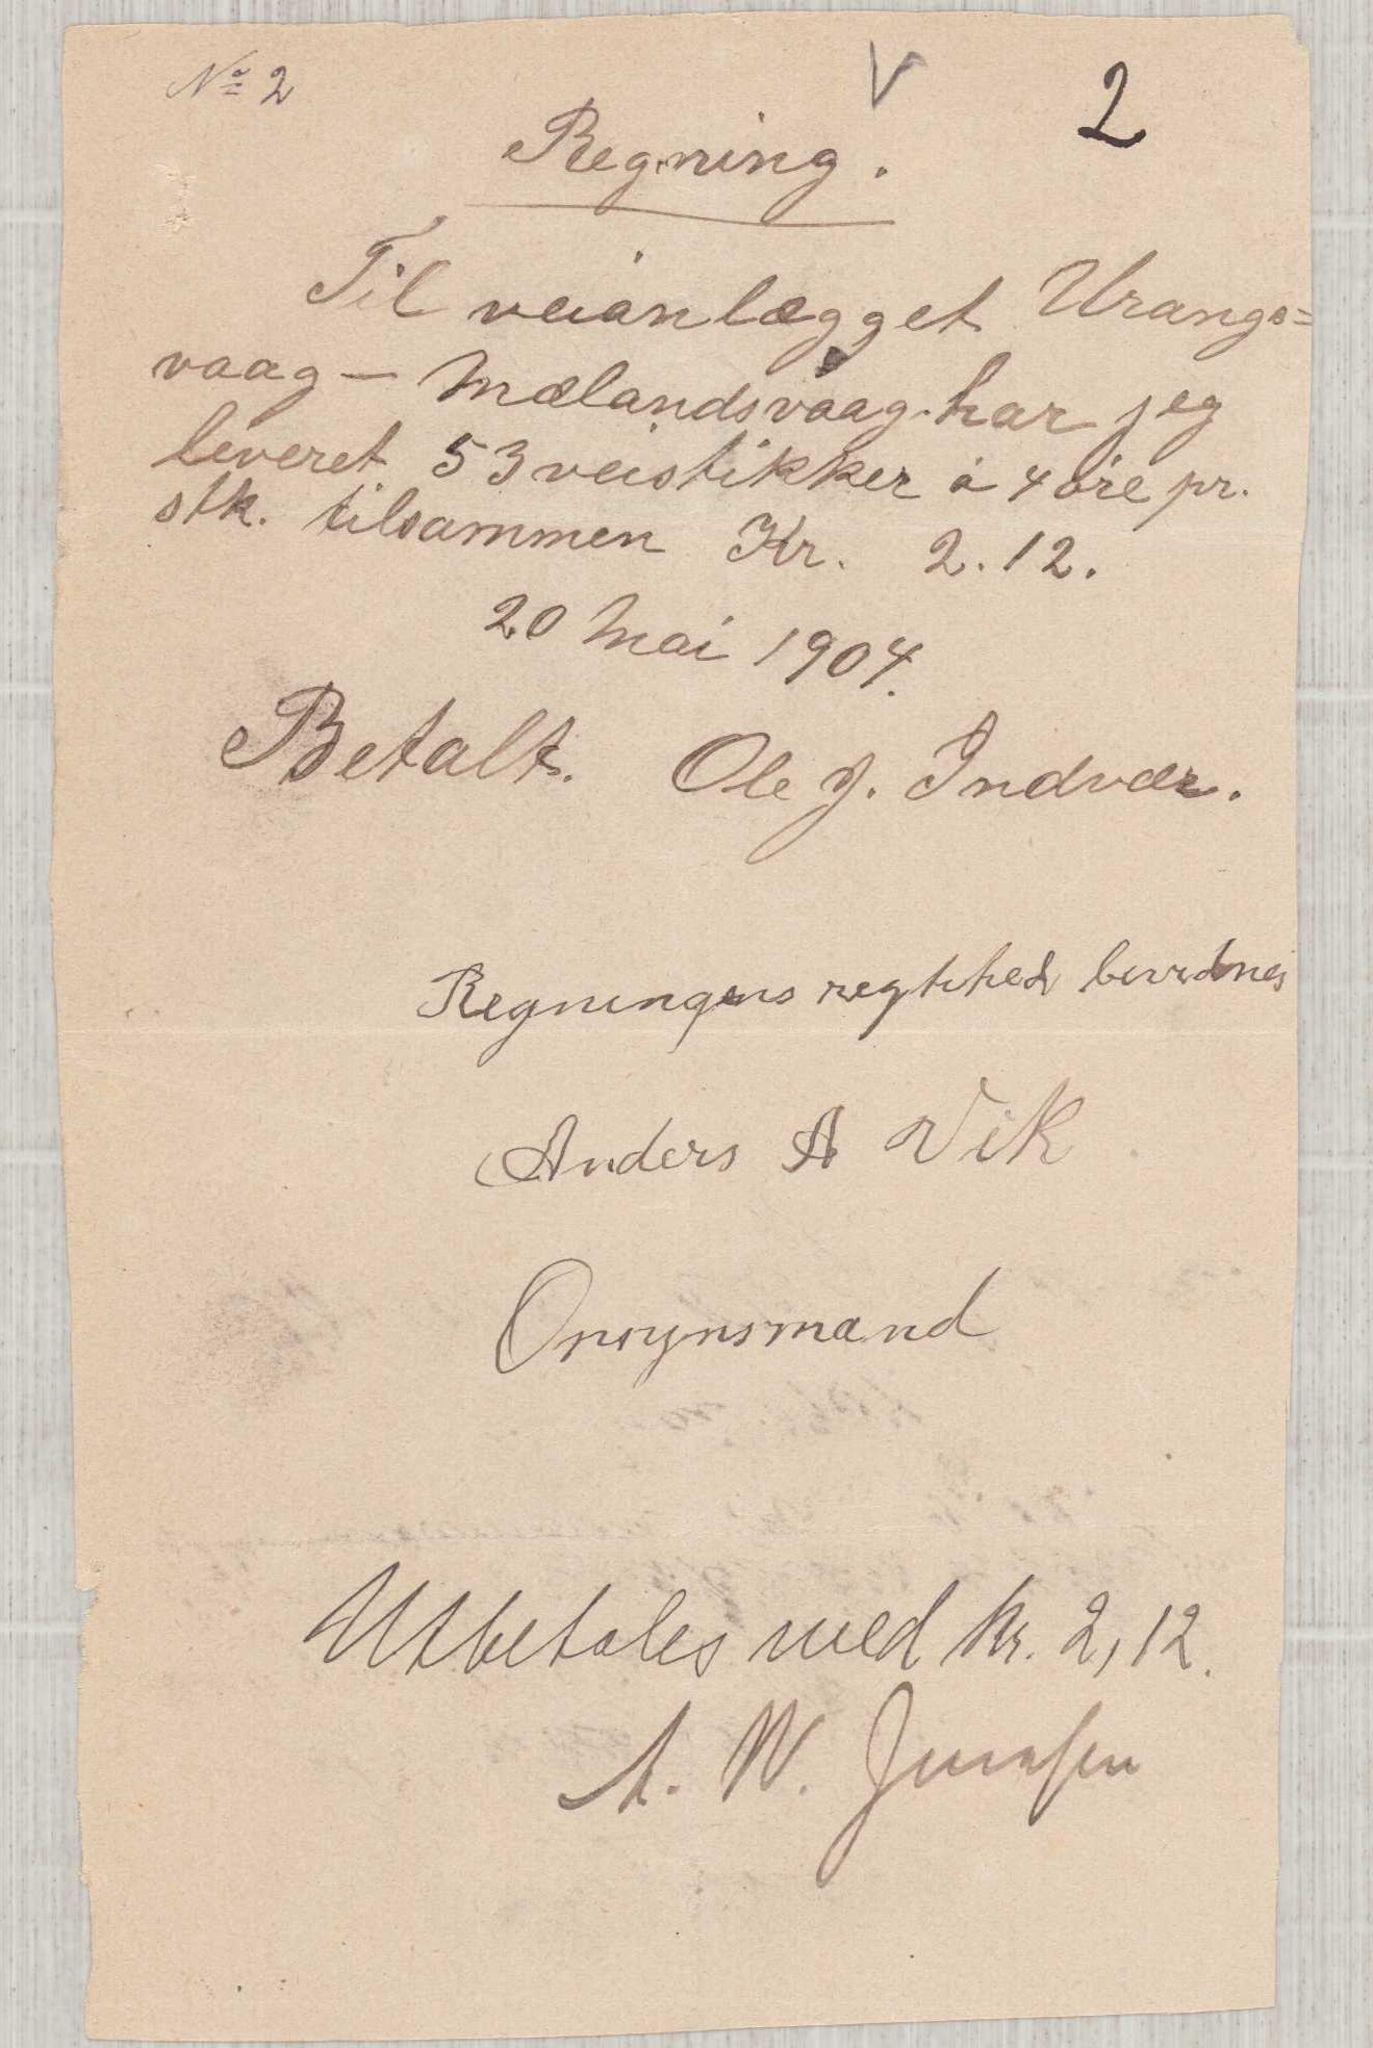 No 2
V
2
Regning.
Til veianlægget Urangs=
vaag - Mælandsvaag har jeg
leveret 53 veistikker á 4 øre pr.
stk. tilsammen Kr. 2.12.
20 Mai 1904.
Betalt. Ole J. Indvær.
Regningens
Anders A Vik
Opsynsmand
Utbetales med Kr. 2,12.
A. W.